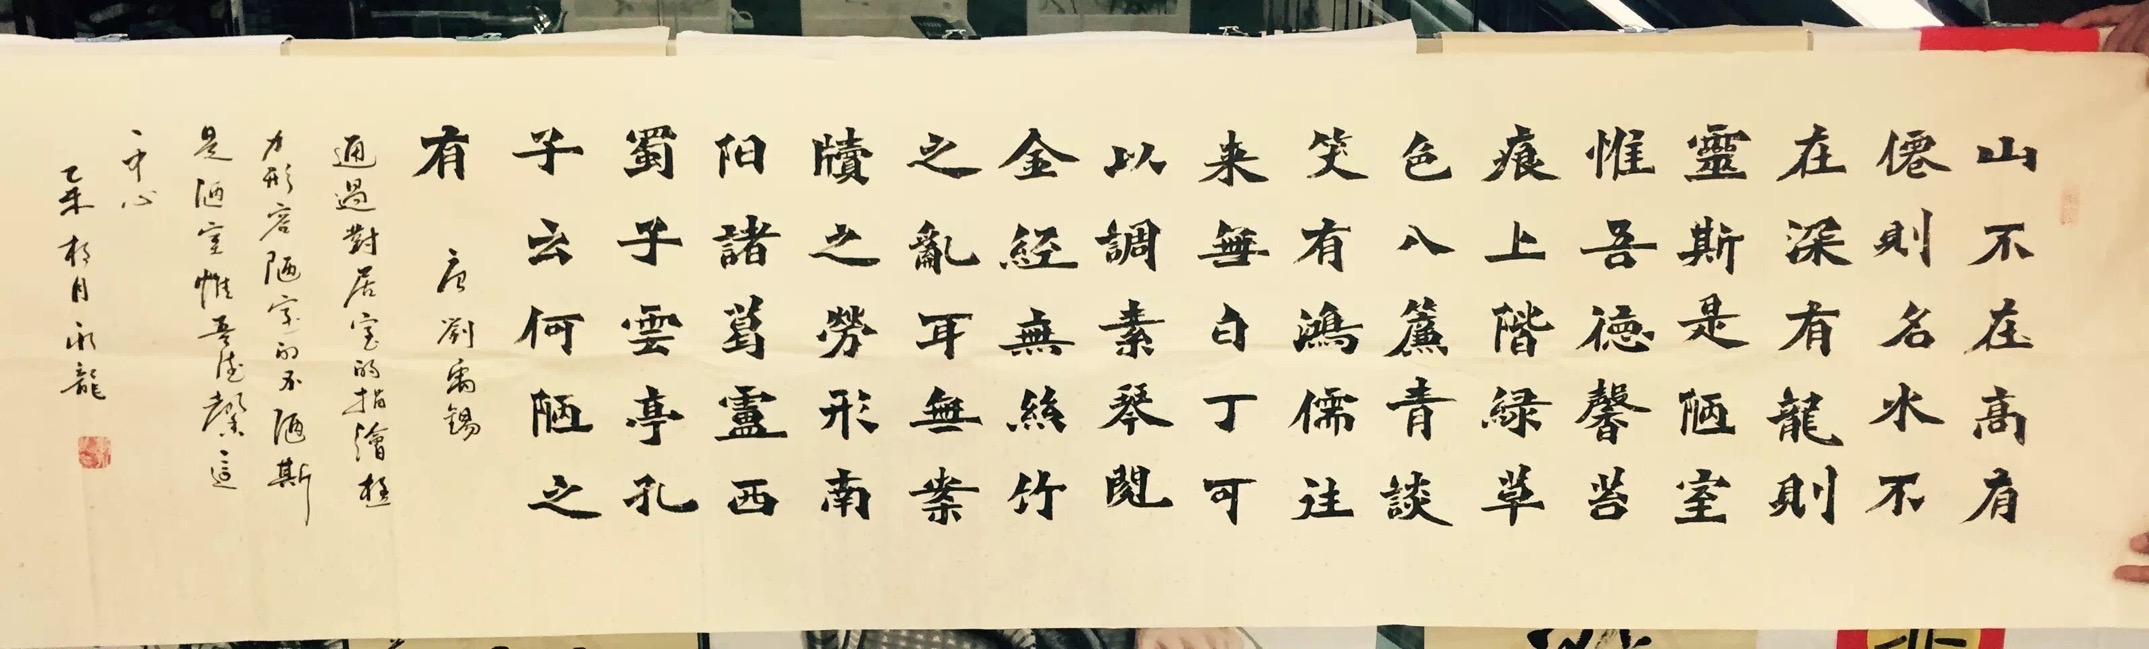 山不在高有
僊則名水不
在深有龍則
靈斯是陋室
惟吾德馨苔
痕上階緑草
色入簾青談
笑有鴻儒往
来無白丁可
以調素琴閲
金經無絲竹
之亂耳無案
牘之勞形南
阳諸葛盧西
蜀子雲亭孔
子云何陋之
有 唐劉禹錫
通過對居室的描繪極
力形容陋室的不陋斯
是陋室惟吾德馨這
一中心
乙未 月永龍